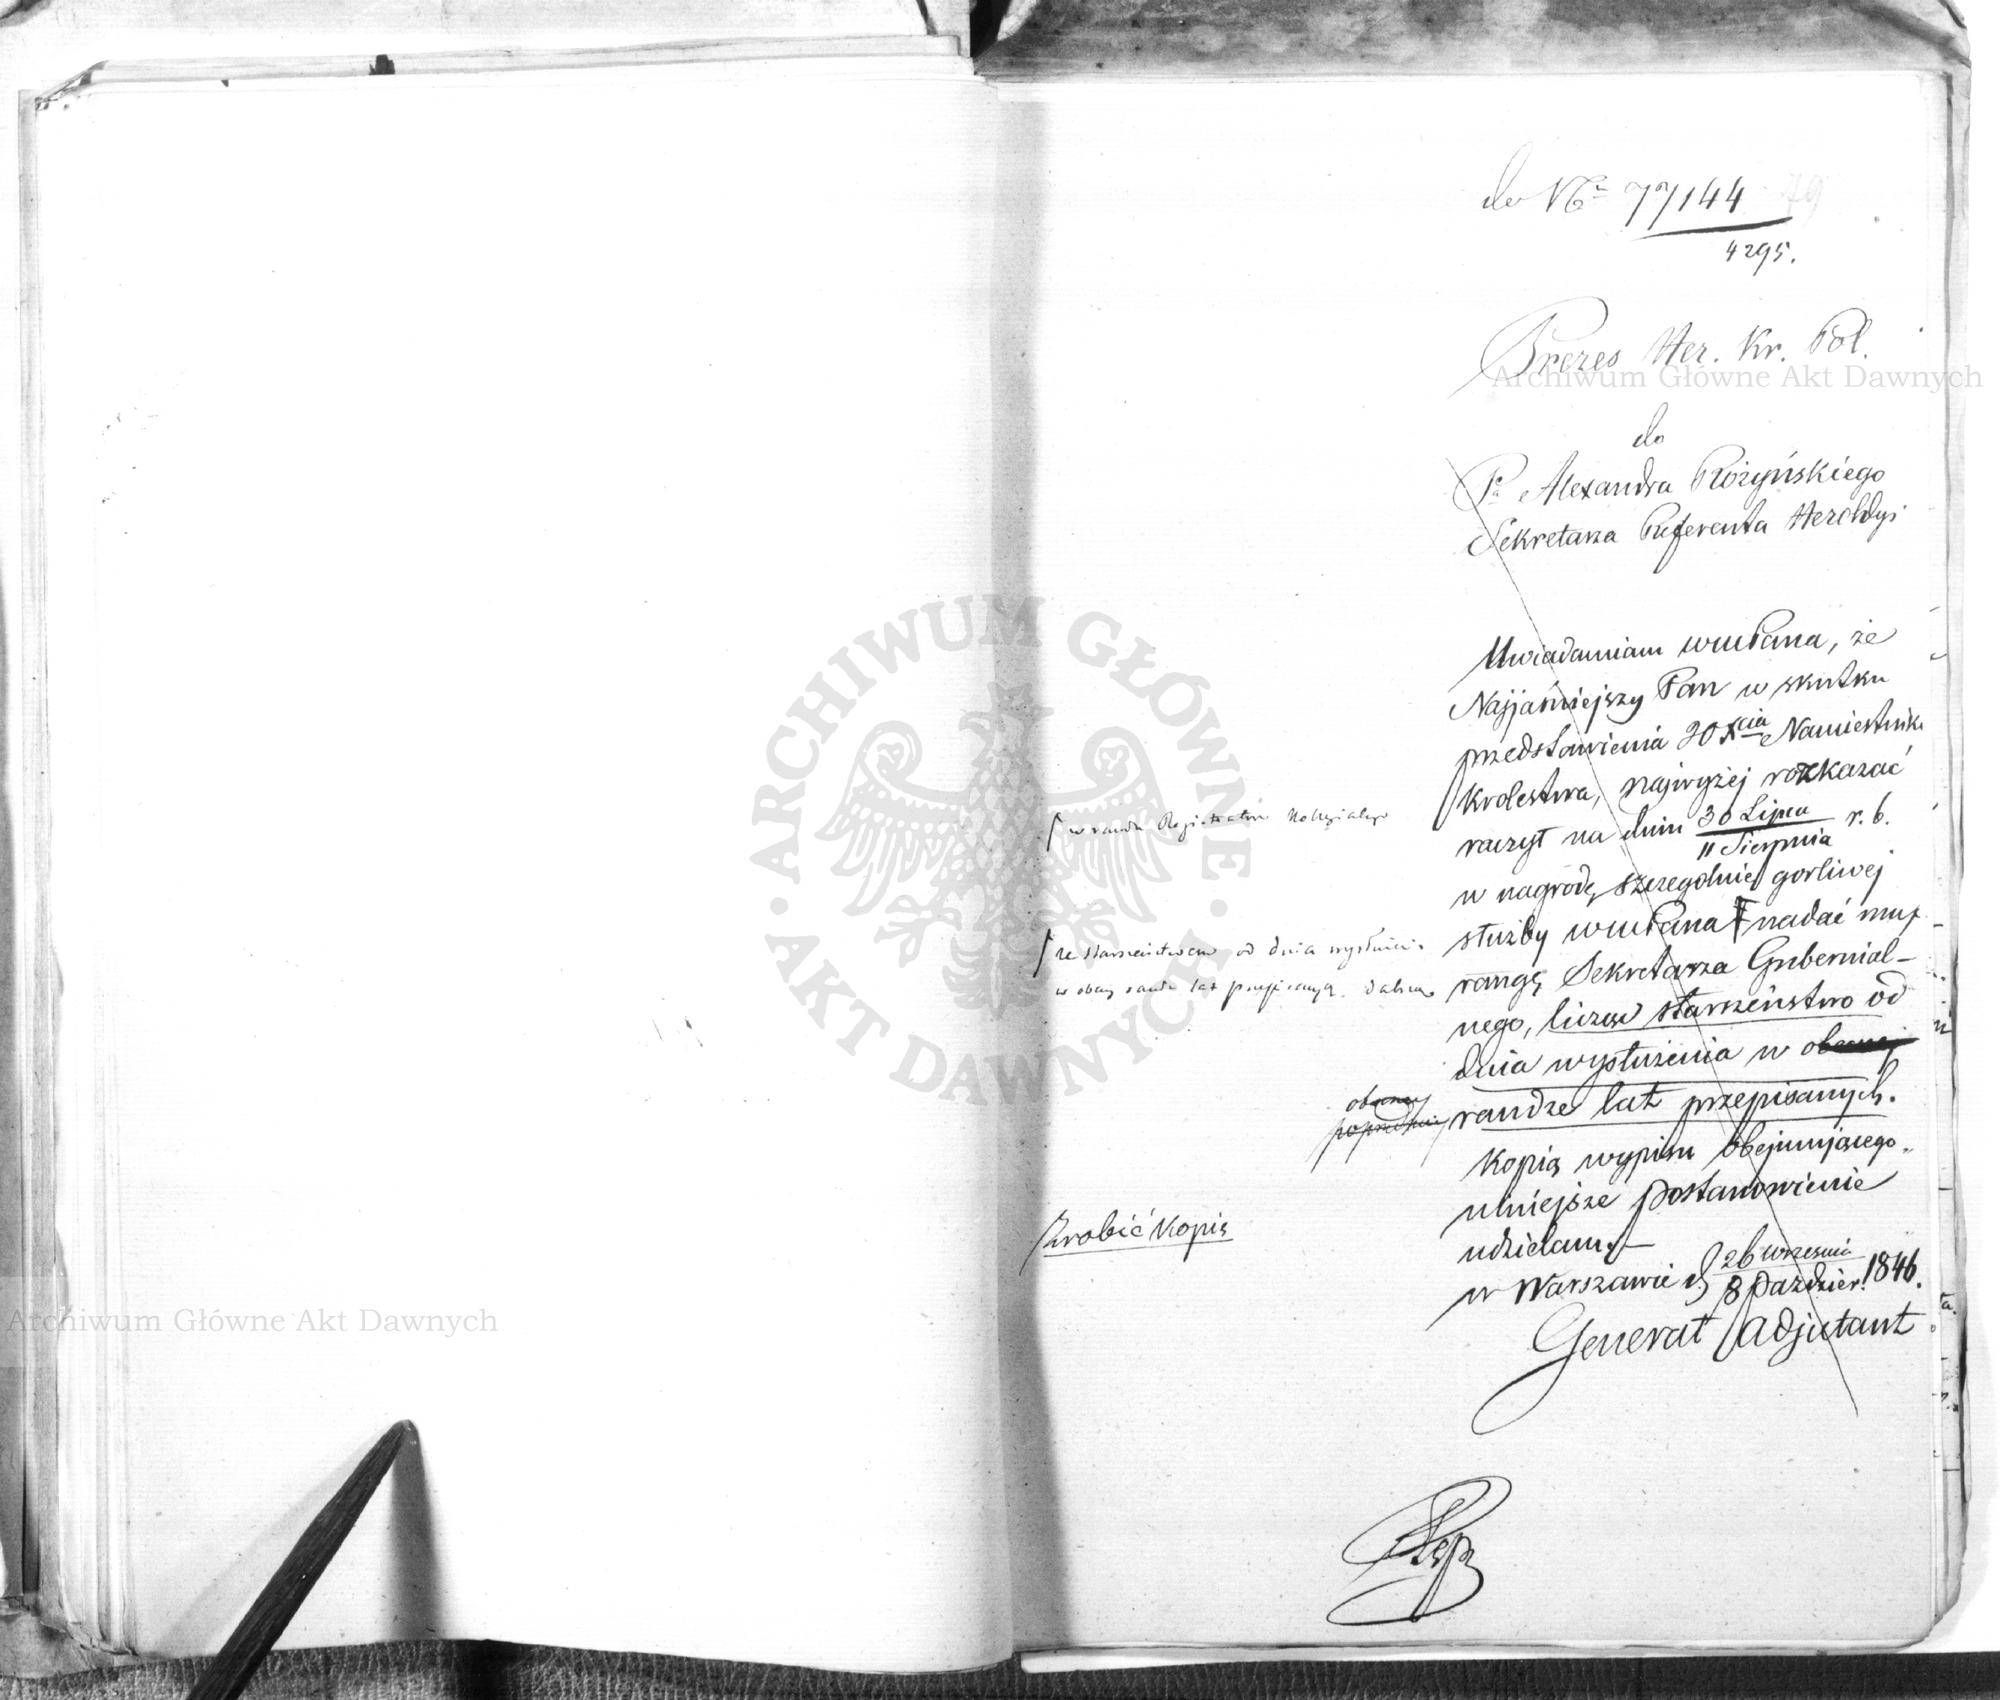 do Nru 77144
79
4295.
Prezes Her. Kr. Pol.
do
Pa Alexandra Różyńskiego
Sekretarza Referenta Heroldyi
Uwiadamiam WnPana, że
Najjaśniejszy Pan w skutku
przedstawienia JO Xcia Namiestnika
Krolestwa, najwyżej rozkazać
raczył na dniu 30 Lipca / 11 Sierpnia r. b.
w nagrodę szczegolniej gorliwej
służby WnPana nadać mu
rangę Sekretarza Gubernial-
nego, licząc starszeństwo od
dnia wysłużenia w obecnej
randze lat przepisanych.
Kopią wypisu obejmującego
niniejsze postanowienie
udzielam.
w Warszawie d 26 Wrzesnia / 8 Paździer. 1846.
Generał Adjutant
w randze Registratora Kollegialnego
ze starszeństwem od dnia wysłużenia
w obecnej randze lat przepisanych
obecnej
poprzedniej
Zrobić Kopią
Archiwum Główne Akt Dawnych
Archiwum Główne Akt Dawnych
ARCHIWUM GŁÓWNE
AKT DAWNYCH